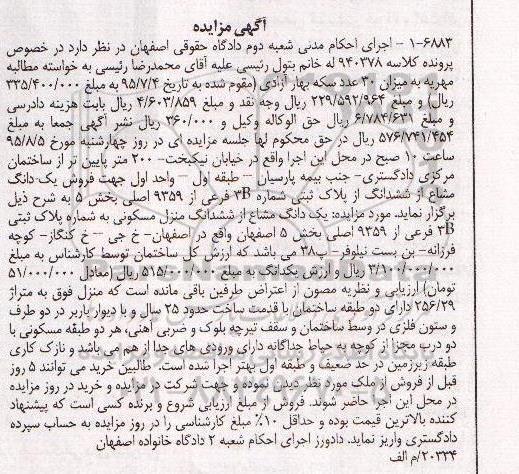 آگهی مزایده
۱-۶۸۸۳ - اجرای احکام مدنی شعبه دوم دادگاه حقوقی اصفهان در نظر دارد در خصوص
پرونده کلاسه ۹۴۰۳۷۸ له خانم بتول رئیسی علیه آقای محمدرضا رئیسی به خواسته مطالبه
مهریه به میزان ۳۰ عدد سکه بهار آزادی (مقوم شده به تاریخ ۹۵/۷/۴ به مبلغ ۳۳۵/۴۰۰/۰۰۰
ریال) و مبلغ ۲۲۹/۵۹۲/۹۶۴ ریال وجه نقد و مبلغ ۴/۶۰۳/۸۵۹ ریال بابت هزینه دادرسی
و مبلغ ۶/۷۸۴/۶۳۱ ریال حق الوکاله وکیل و ۳۶۰/۰۰۰ ریال نشر آگهی جمعا به مبلغ
۵۷۶/۷۴۱/۴۵۴ ریال در حق محکوم لها جلسه مزایده ای در روز چهارشنبه مورخ ۹۵/۸/۵
ساعت ۱۰ صبح در محل این اجرا واقع در خیابان نیکبخت- ۲۰۰ متر پایین تر از ساختمان
مرکزی دادگستری- جنب بیمه پارسیان - طبقه اول - واحد اول جهت فروش یک دانگ
مشاع از ششدانگ از پلاک ثبتی شماره ۳B فرعی از ۹۳۵۹ اصلی بخش ۵ به شرح ذیل
برگزار نماید. مورد مزایده: یک دانگ مشاع از ششدانگ منزل مسکونی به شماره پلاک ثبتی
۳B فرعی از ۹۳۵۹ اصلی بخش ۵ اصفهان واقع در اصفهان- خ جی - خ کنگاز- کوچه
فرزانه- بن بست نیلوفر- پ۳۸ می باشد که ارزش کل ساختمان توسط کارشناس به مبلغ
۳/۱۰۰/۰۰۰/۰۰۰ ریال و ارزش یکدانگ به مبلغ ۵۱۵/۰۰۰/۰۰۰ ریال (معادل ۵۱/۰۰۰/۰۰۰
تومان) ارزیابی و نظریه مصون از اعتراض طرفین باقی مانده است که منزل فوق به متراژ
۲۵۶/۲۹ دارای دو طبقه ساختمان با قدمت ساخت حدود ۲۵ سال و با دیوار باربر در دو طرف
و ستون فلزی در وسط ساختمان و سقف تیرچه بلوک و ضربی آهنی، هر دو طبقه مسکونی با
دو درب مجزا از کوچه به حیاط جداگانه دارای ورودی های جدا از هم می باشد و نازک کاری
طبقه زیرزمین در حد ضعیف و طبقه اول بهتر اجرا شده است. طالبین خرید می توانند ۵ روز
قبل از فروش از ملک مورد نظر دیدن نموده و جهت شرکت در مزایده و خرید در روز مزایده
در محل این اجرا حاضر شوند. فروش از مبلغ ارزیابی شروع و برنده کسی است که پیشنهاد
کننده بالاترین قیمت بوده و حداقل ۱۰٪ مبلغ کارشناسی را در روز مزایده به حساب سپرده
دادگستری واریز نماید. دادورز اجرای احکام شعبه ۲ دادگاه خانواده اصفهان
۲۰۳۳۴/م الف